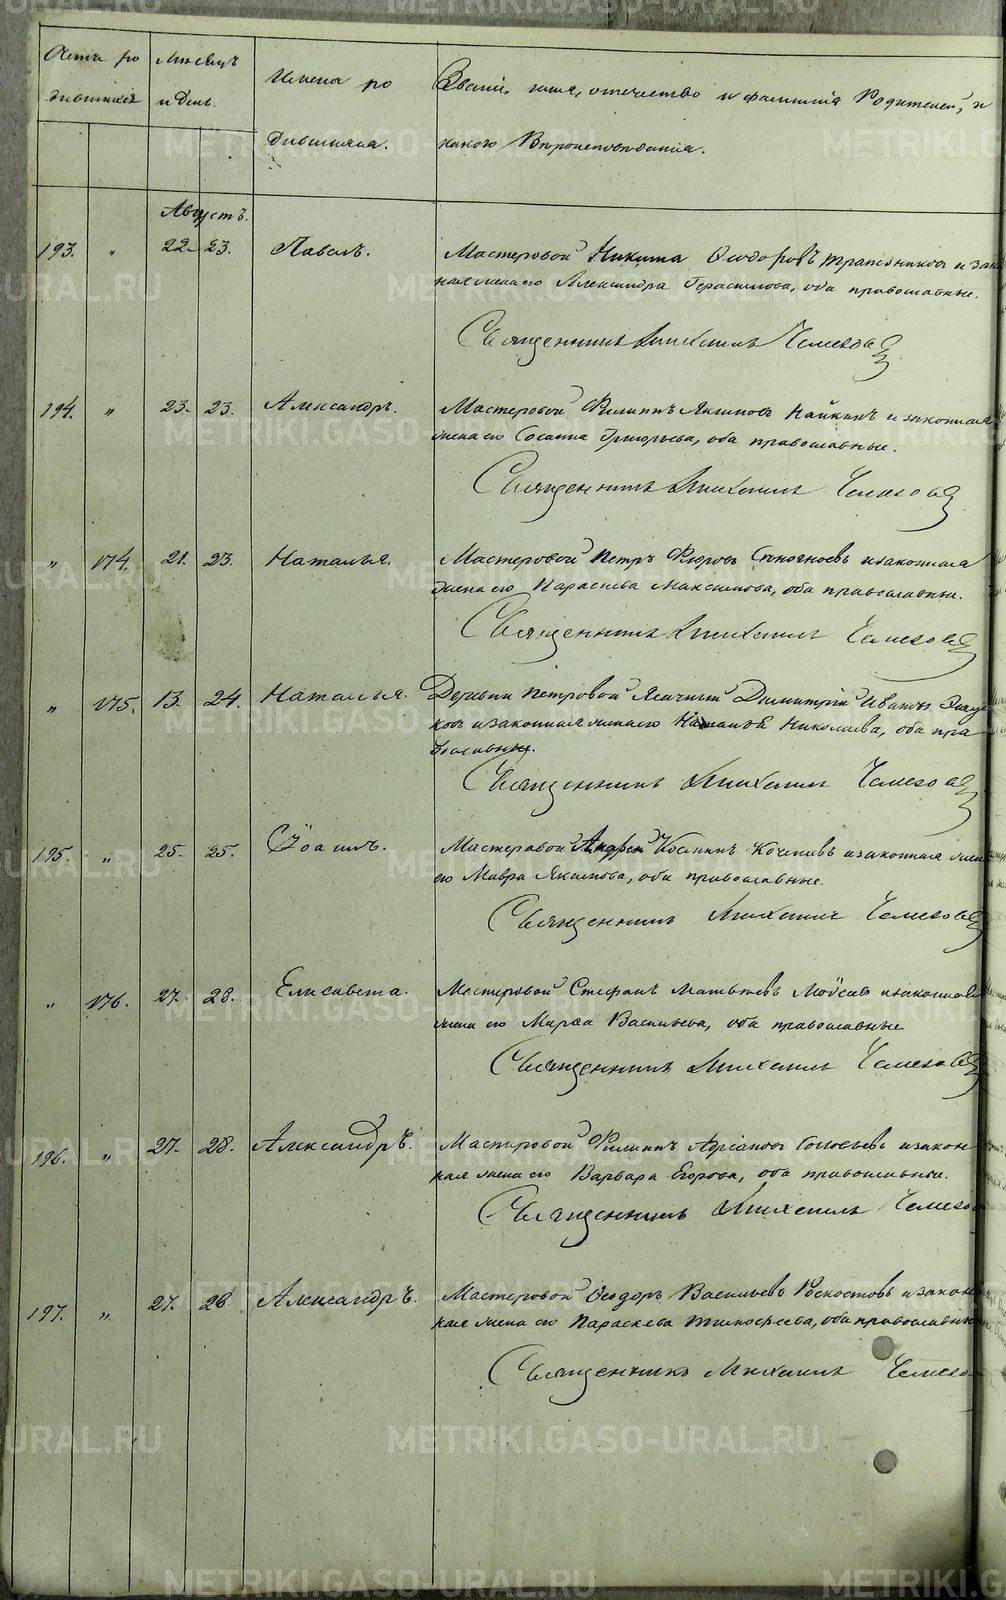 Счетъ ро
дившихся
Мѣсяцъ
и день.
Имена ро
дившихся.
Званіе, имя, отечество и фамилія Родителей, и
какого Вѣроисповѣданія.
Августъ.
193. " 22. 23. Павелъ. Мастеровой Никита Ѳеодоровъ и закон
ная жена его Александра Герасимова, оба православные.
Священникъ Михаилъ
194. " 23. 23. Александръ. Мастеровой Филиппъ Якимовъ и законная
жена его Сосанна Григорьева, оба православные.
Священникъ Михаилъ
" 174. 21. 23. Наталья. Мастеровой Петръ и законная
жена его Параскева Максимова, оба православные.
Священникъ Михаилъ
" 175. 13. 24. Наталья. Деревни Петровой Димитрій Ивановъ
ковъ и законная жена его Наталья Николаева, оба пра
вославные.
Священникъ Михаилъ
195. " 25. 25. Іоаннъ. Мастеровой Андрей и законная жена
его Мавра Якимова, оба православные.
Священникъ Михаилъ
" 176. 27. 28. Елисавета. Мастеровой Стефанъ Матвѣевъ и законная
жена его Марѳа Васильева, оба православные.
Священникъ Михаилъ
196. " 27. 28. Александръ. Мастеровой Филиппъ Адріановъ и закон
ная жена его Варвара Егорова, оба православные.
Священникъ Михаилъ
197. " 27. 28. Александръ. Мастеровой Ѳеодоръ Васильевъ и закон
ная жена его Параскева Тимофеева, оба православные
Священникъ Михаилъ
METRIKI.GASO-URAL.RU